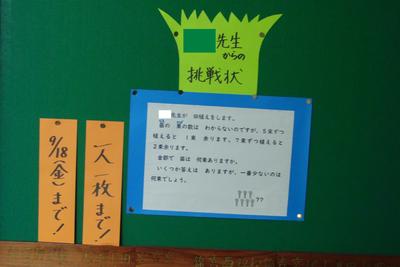 先生
からの
挑戦状
先生が　田植えをします。
苗の　束の数は　わからないのですが、５束ずつ
植えると　１束　余ります。７束ずつ植えると
２束余ります。
全部で　苗は　何束ありますか。
いくつか答えは　ありますが、一番少ないのは
何束でしょう。
??
一人一枚まで！
9/18(金)まで！